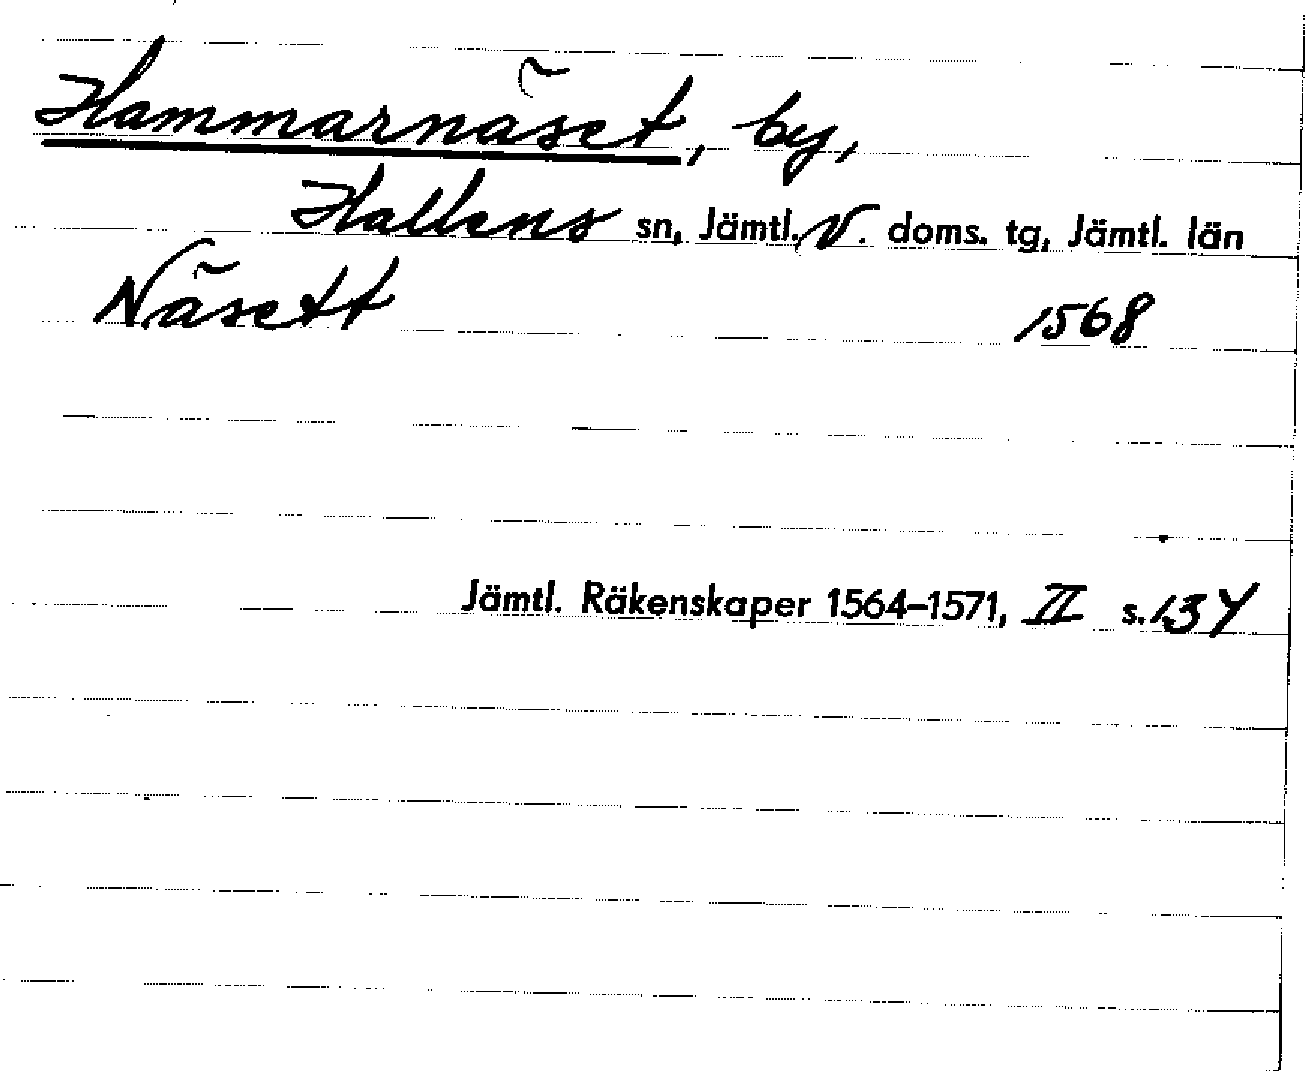 Hammarnäset, by,
Hallens sn, Jämtl. V. doms. tg, Jämtl. län
Näsett 1568
Jämtl. Räkenskaper 1564–1571, II s. 134